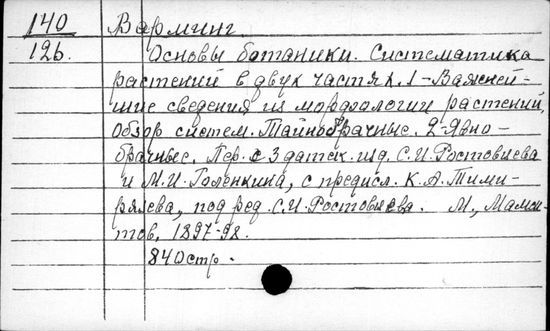 140 Варминг.
126. Основы ботаники. Систематика
растений в двух частях. 1-Важней-
шие сведения из морфологии растений.
Обзор систем. Тайнобрачные. 2-Явно-
брачные. Пер. с 3 датск. изд. С.И. Ростовцева
и М.И. Голенкина, с предисл. К.А. Тими-
рязева, под ред. С.И. Ростовцева. М., Мамон-
тов, 1897-98.
840стр.